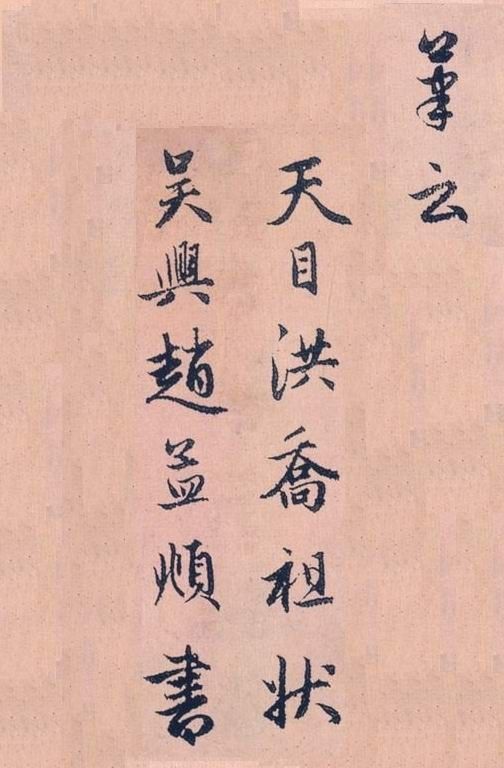 筆云
天目洪喬祖狀
吳興趙孟頫書